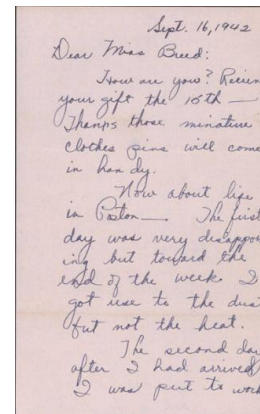 Sept. 16, 1942
Dear Miss Breed:
How are you? Recien
your gift the 15th —
Thanps those minature
clothes pins will come
in handy.
Now about life
in Poston — The first
day was very disappoi
ing but toward the
end of the week I
got use to the dust
but not the heat.
The second day
after I had arrived
I was put to work